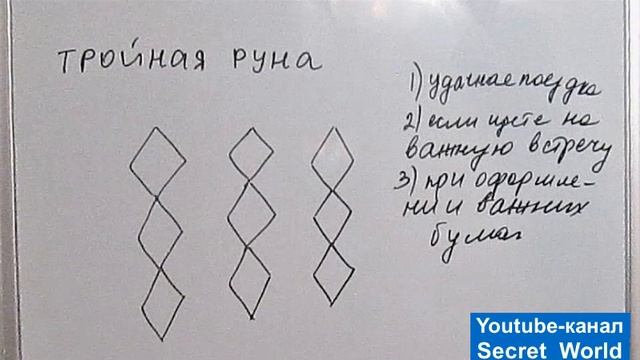 тройная руна
1) удачная поездка
2) если идете на
важную встречу
3) при оформле-
нии важных
бумаг
Youtube-канал
Secret World